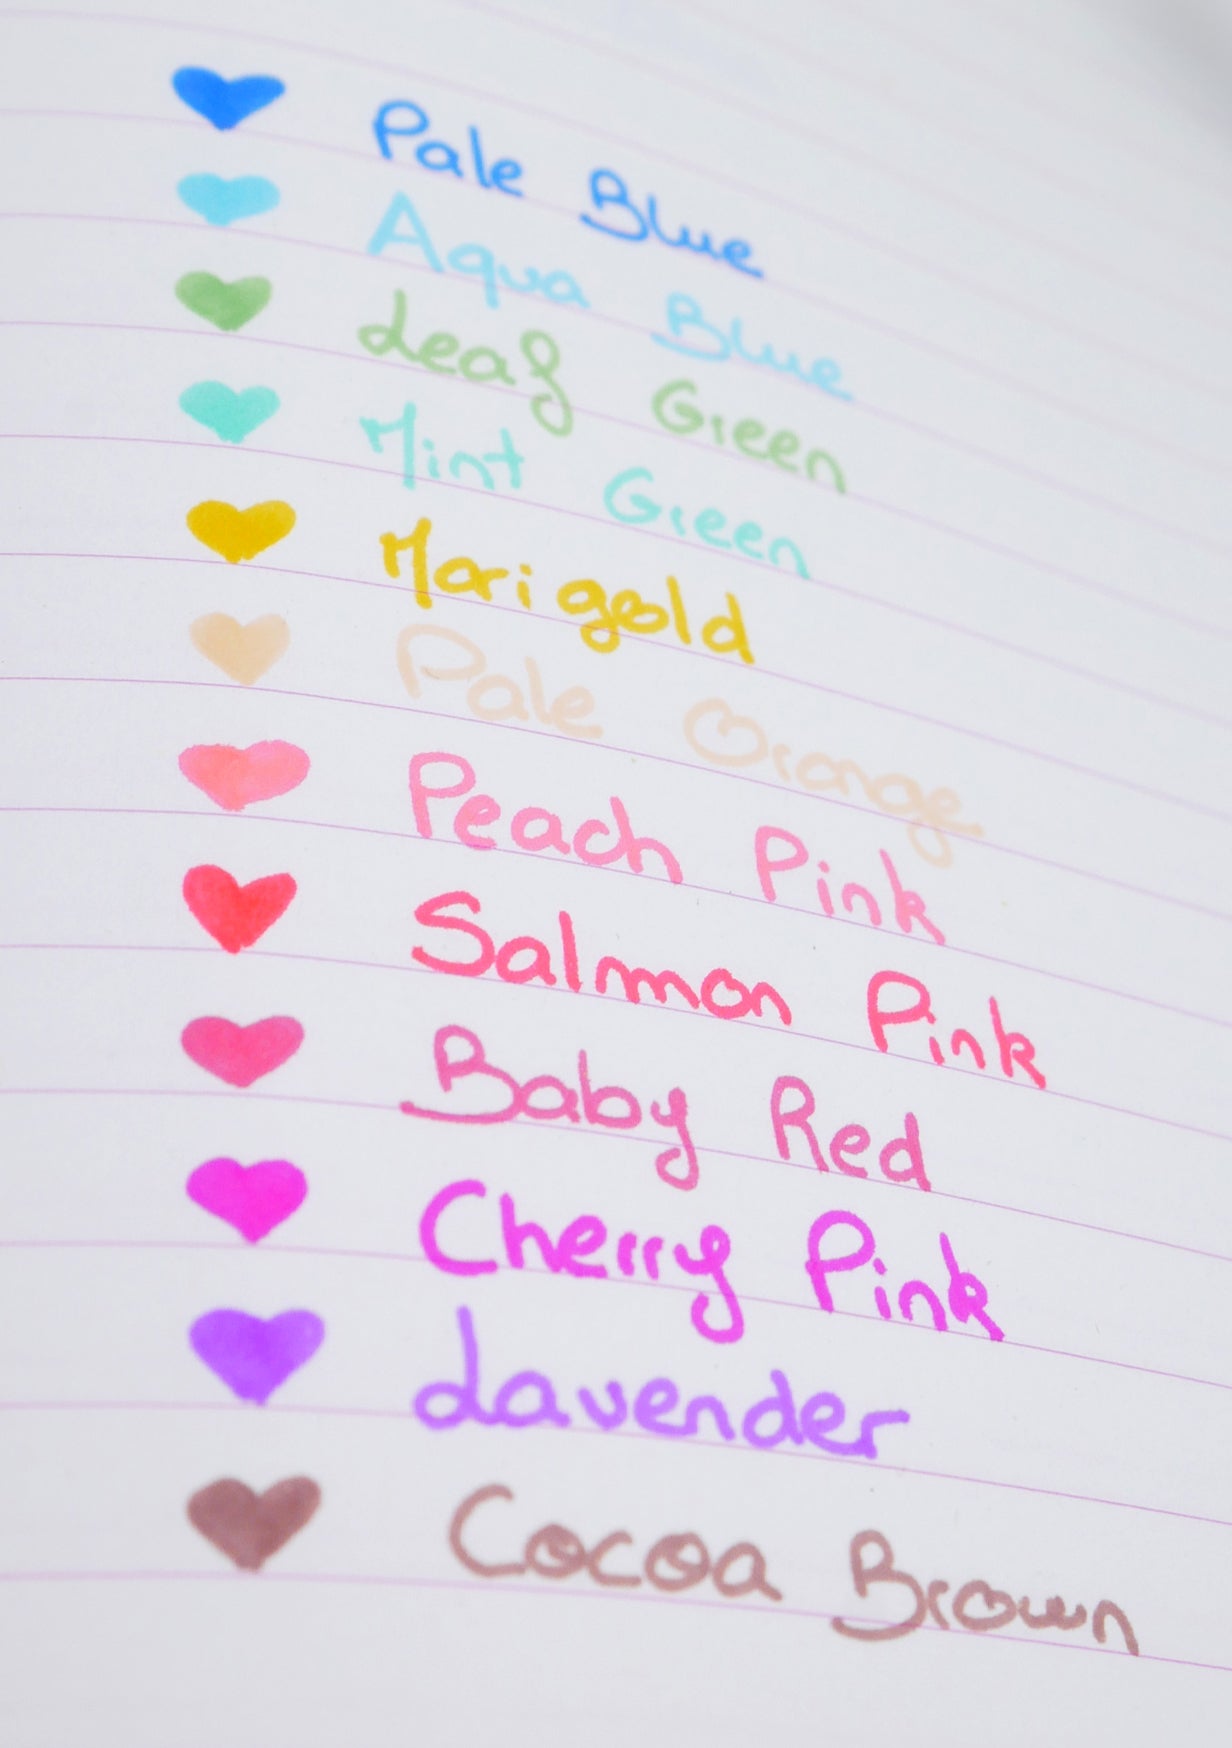 Pale Blue
Aqua Blue
Leaf Green
Mint Green
Marigold
Pale Orange
Peach Pink
Salmon Pink
Baby Red
Cherry Pink
Lavender
Cocoa Brown